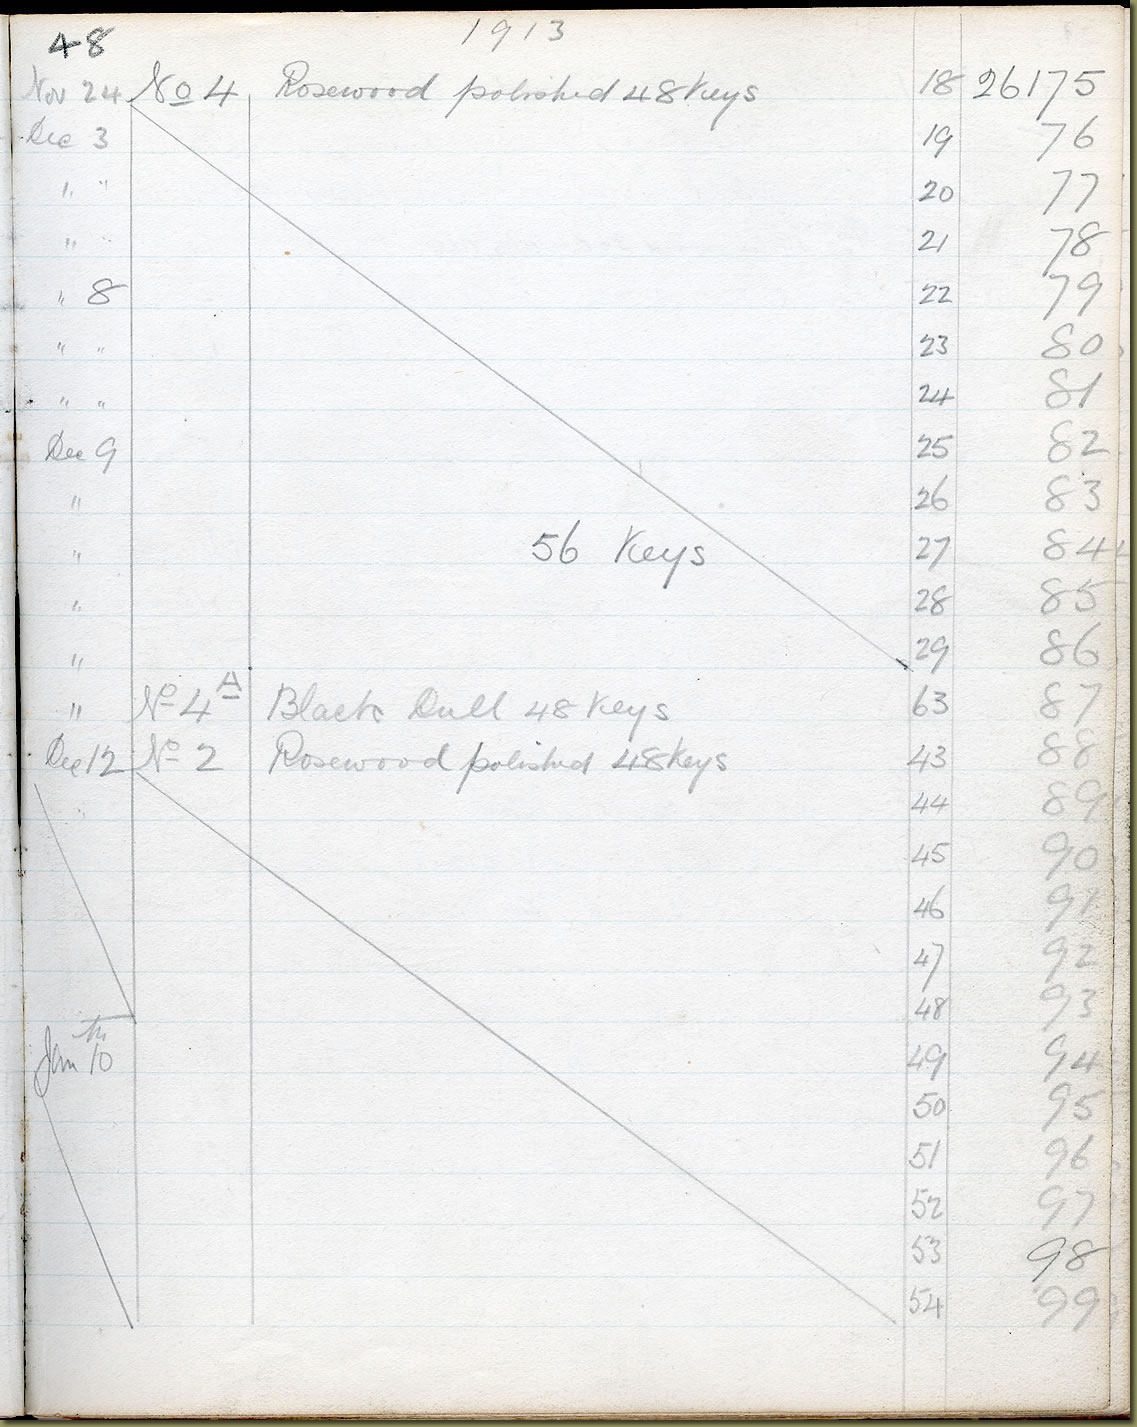 48 1913
Nov 24 No 4 Rosewood polished 48 Keys 18 26175
Dec 3 19 76
" " 20 77
" 21 78
" 8 22 79
" " 23 80
" " 24 81
Dec 9 25 82
" 26 83
" 56 Keys 27 84
" 28 85
" 29 86
" No 4A Black Dull 48 Keys 63 87
Dec 12 No 2 Rosewood polished 48 Keys 43 88
" 44 89
45 90
46 91
47 92
48 93
Jan 10th 49 94
50 95
51 96
52 97
53 98
54 99